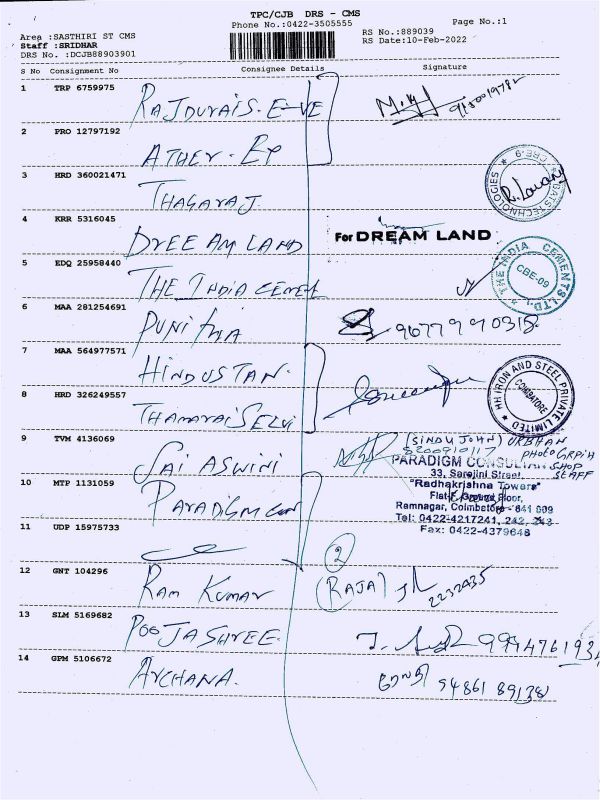 TPC/CJB DRS - CMS
Phone No.:0422-3505555
Page No.:1
Area :SASTHIRI ST CMS
RS No.:889039
Staff :SRIDHAR
RS Date:10-Feb-2022
DRS No. :DCJB88903901
S No Consignment No Consignee Details Signature
1 TRP 6759975
RAJDURAIS. E-VE
2 PRO 12797192
ATHER. EP
3 HRD 360021471
THAGARAJ
CBE-9
4 KRR 5316045
DREEAM LAND
For DREAM LAND
5 EDQ 25958440
THE INDIA CEMET
THE INDIA CEMENTS LTD.,
CBE-09
6 MAA 281254691
PUNITHA
7 MAA 564977571
HINDUSTAN.
HH IRON AND STEEL PRIVATE LIMITED
COIMBATORE
8 HRD 326249557
THAMARAI SELVI
9 TVM 4136069
SAI ASWINI
(SINDU JOHN) URBHAN
8200910117 PHOTO GRPIH
SHOP
STAFF
10 MTP 1131059
PARADIGM CON
PARADIGM CONSULTAN
33, Sarojini Street,
"Radhakrishna Towers"
Ground Floor,
Ramnagar, Coimbatore - 641 009
Tel: 0422-4217241, 242, 243
Fax: 0422-4379648
11 UDP 15975733
2
12 GNT 104296
RAM KUMAR
(RAJA)
2232435
13 SLM 5169682
POOJA SHREE
14 GPM 5106672
ARCHANA.
94861 89138